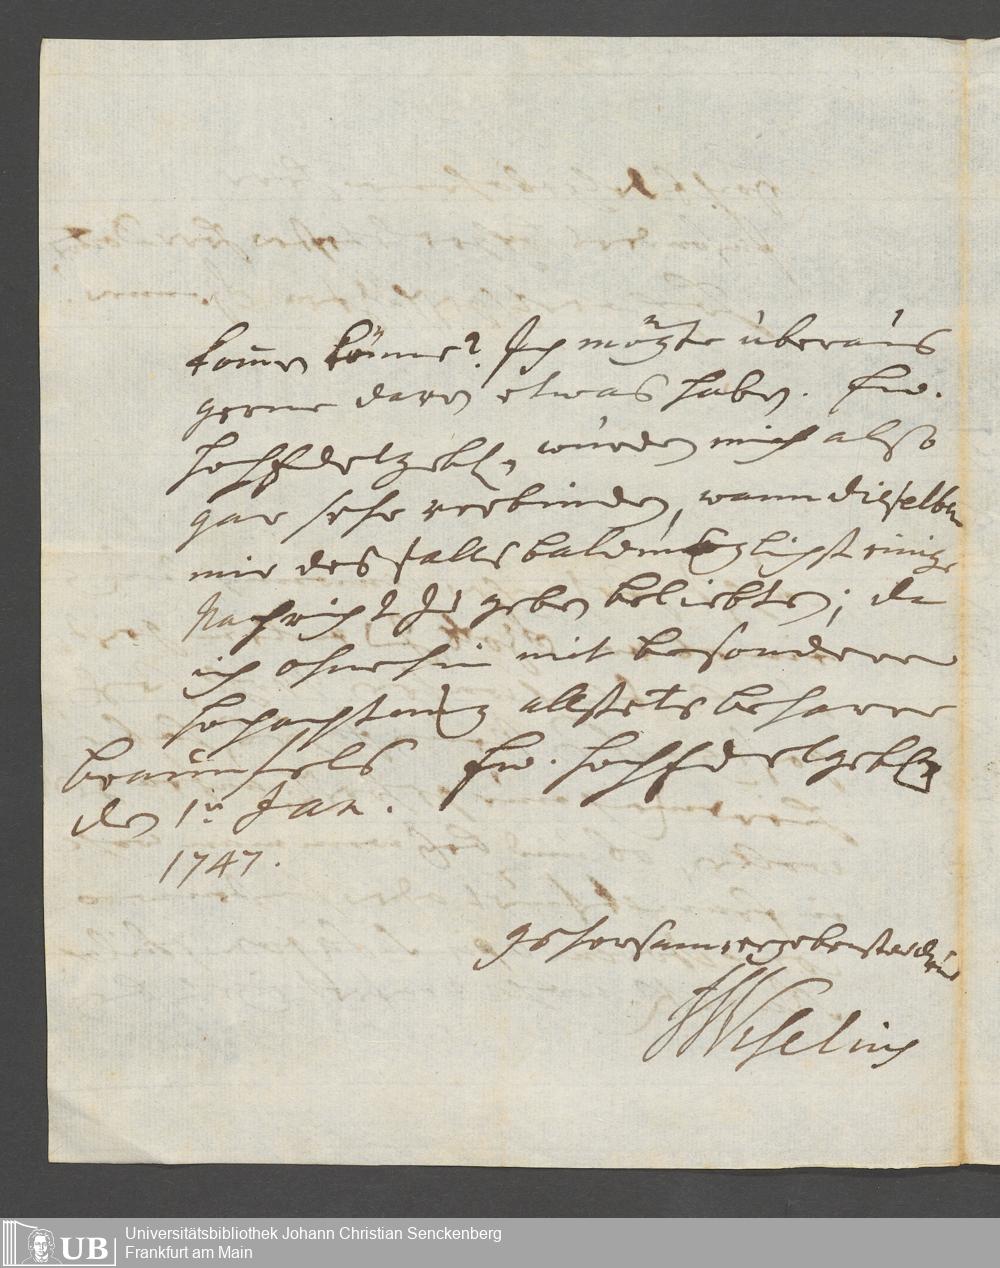 komen könne? Ich mögte überaus
gerne davon etwas haben. Ew.
HochEdelgeb. würden mich also
gar sehr verbinden, wann dieselben
mir desfalls baldmöglichst einige
Nachricht zu geben beliebten; da
ich ohnehin mit besonderer
Hochachtung allstets beharre
Braunfels Ew. HochEdelgeb.
den 1n Jan.
1747.
gehorsamergebenster
JWHelius
Universitätsbibliothek Johann Christian Senckenberg
Frankfurt am Main
UB